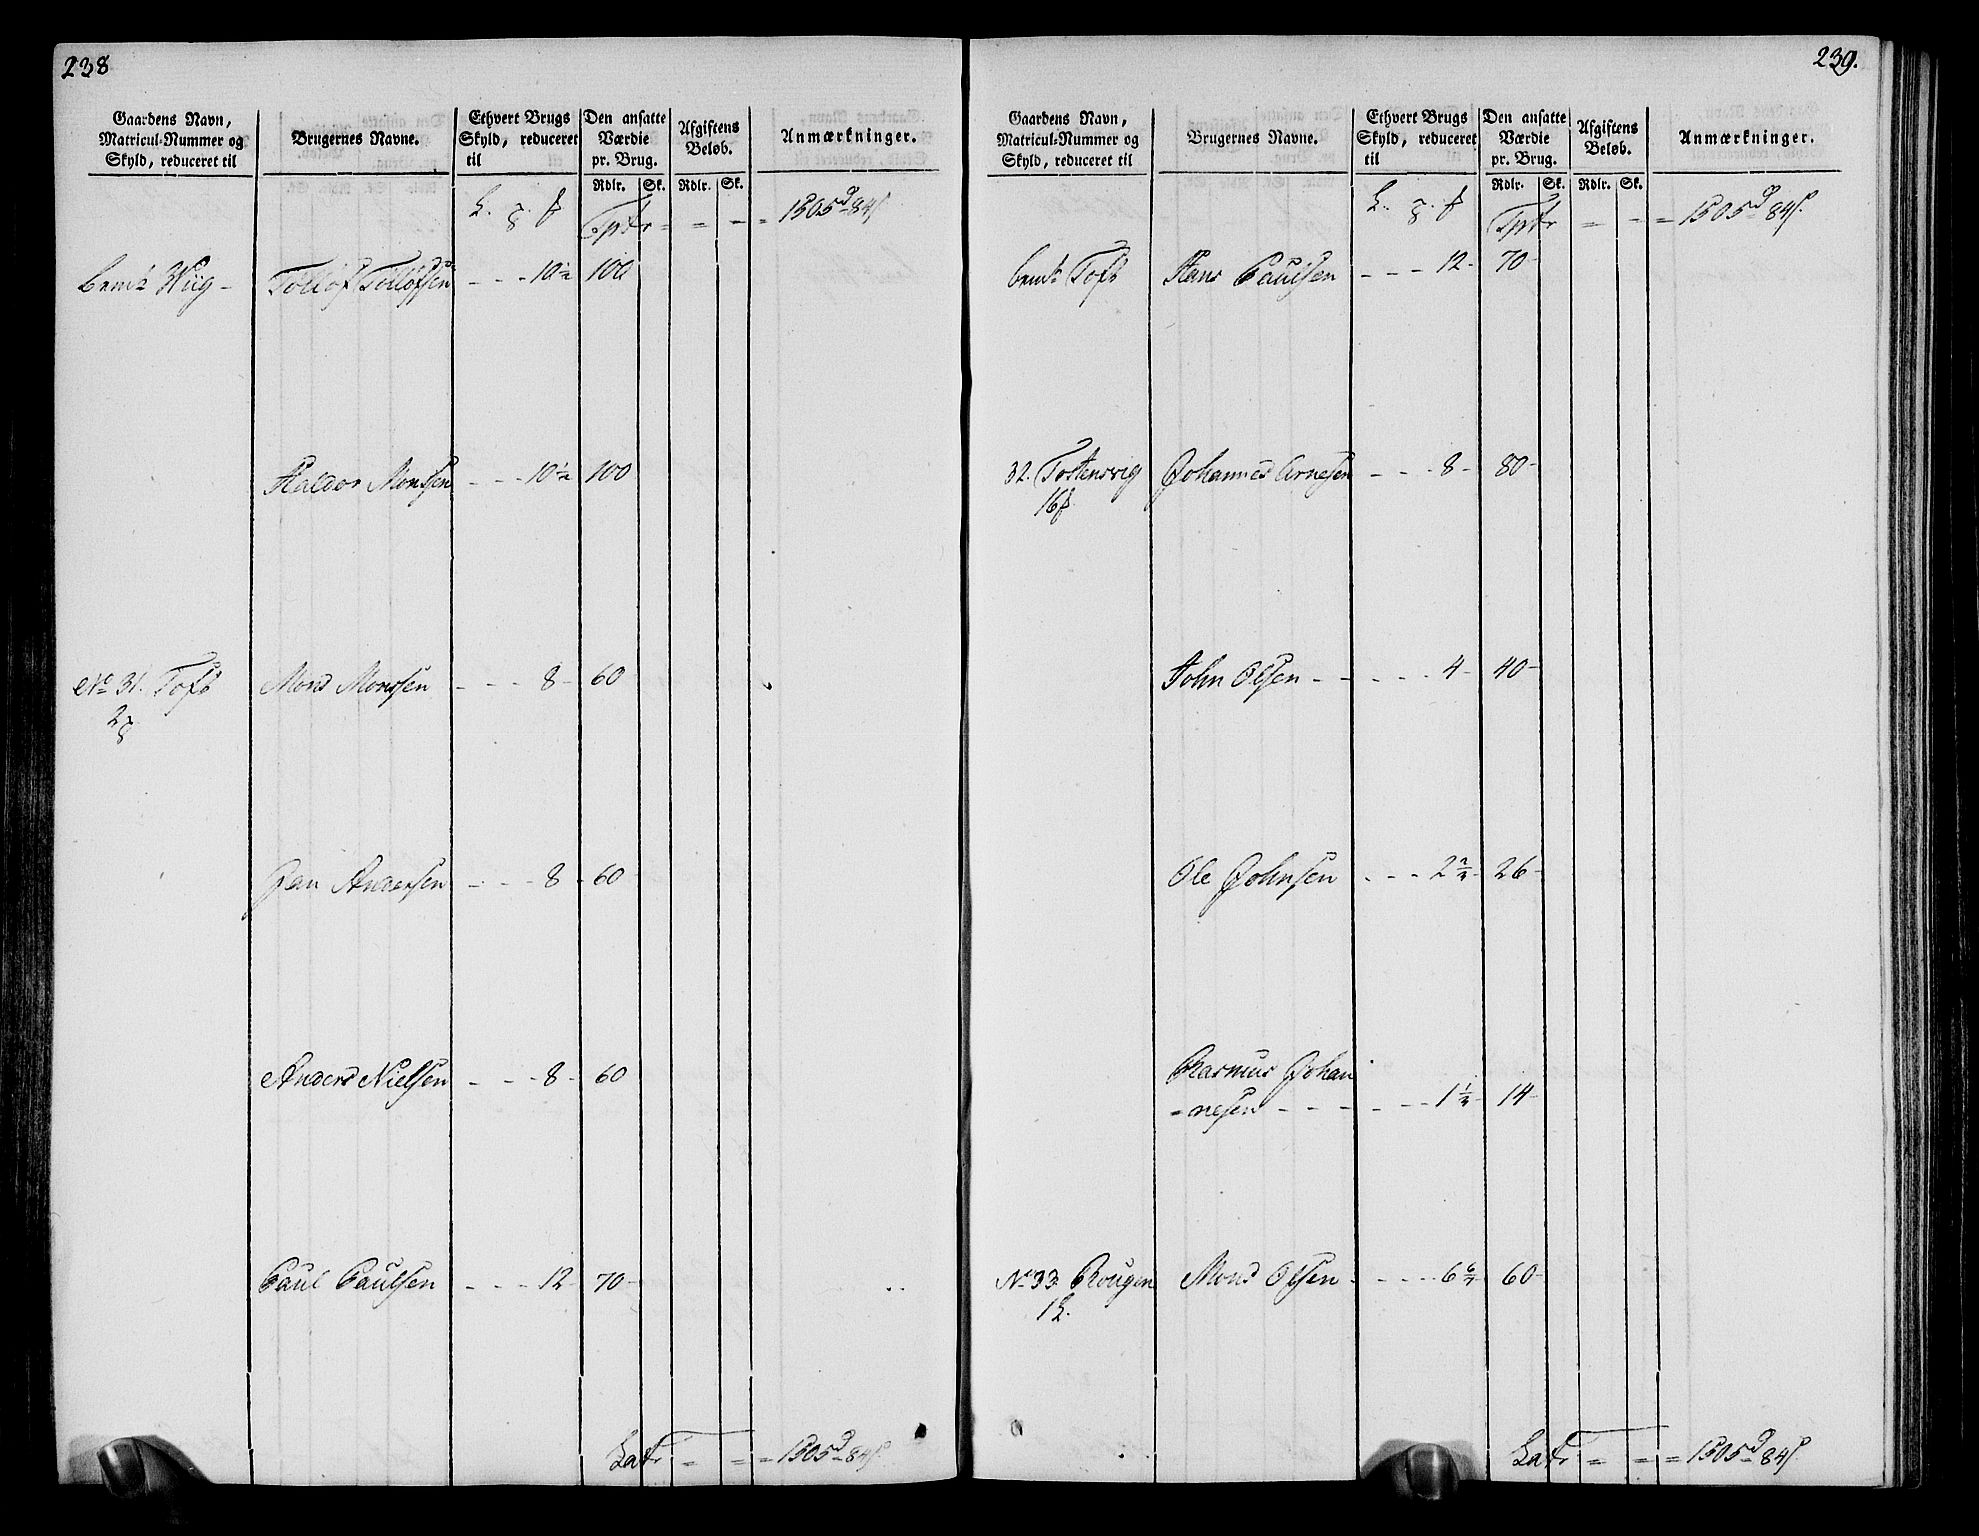 238
Gaardens Navn, Matricul-Nummer og Skyld, reduceret til
Brugernes Navne.
Ethvert Brugs Skyld, reduceret til
Den ansatte Værdie pr. Brug.
Afgiftens Beløb.
Anmærkninger.
Rdlr. Sk. Rdlr. Sk.
Tptr = = = = 1505 84
Wiig - Tolløf Tolløfsen - - - 10½ 100
Haldor Monssen - - - 10½ 100
No 31. Toft Mons Monssen - - - 8 - 60
2
Jan Andersen - - - 8 - 60
Anders Nielsen - - - 8 - 60
Paul Paulsen - - - 12 - 70 -
Latr = = = 1505 84
239.
Gaardens Navn, Matricul-Nummer og Skyld, reduceret til
Brugernes Navne.
Ethvert Brugs Skyld, reduceret til
Den ansatte Værdie pr. Brug.
Afgiftens Beløb.
Anmærkninger.
Rdlr. Sk. Rdlr. Sk.
Tptr = = = 1505 84
Toft Hans Paulsen - - - 12 - 70 -
32. Tostensvig Johannes Arnesen - - - 8 - 80 -
16
John Olsen - - - - - 4 - 40 -
Ole Johnsen - - - 2 26 -
Rasmus Johan
= nesen - - - - - - 1 14 -
No 33. Rougen Mons Olsen - - - - 6 60 -
1
Latr = = = 1505 84